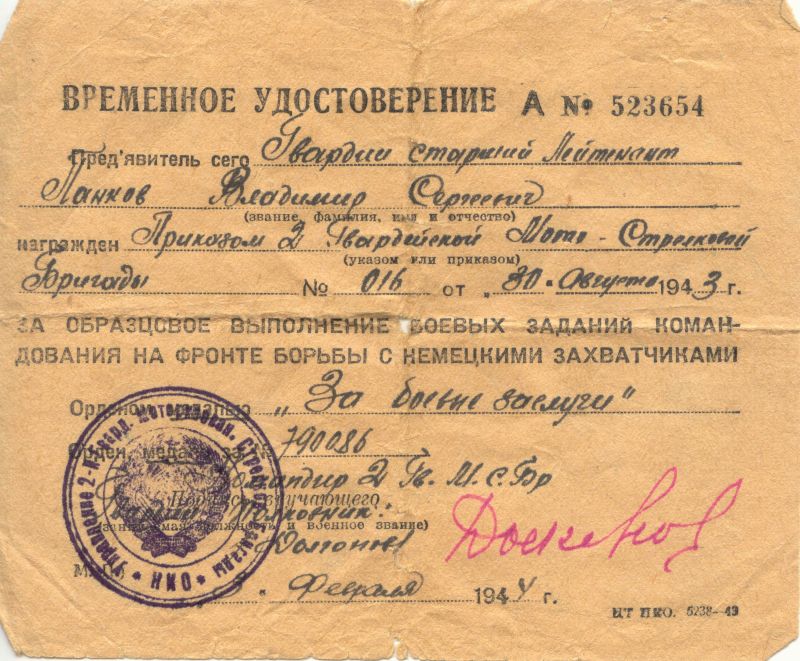 ВРЕМЕННОЕ УДОСТОВЕРЕНИЕ А № 523654
Пред'явитель сего Гвардии старший Лейтенант
Панков Владимир Сергеевич
(звание, фамилия, имя и отчество)
награжден Приказом 2 Гвардейской Мото-Стрелковой
(указом или приказом)
Бригады № 016 от „30" Августа 1943 г.
ЗА ОБРАЗЦОВОЕ ВЫПОЛНЕНИЕ БОЕВЫХ ЗАДАНИЙ КОМАН-
ДОВАНИЯ НА ФРОНТЕ БОРЬБЫ С НЕМЕЦКИМИ ЗАХВАТЧИКАМИ
Орденом медалью „За боевые заслуги"
Орден, медаль за № 790086
Командир 2 Гв. М.С.Бр
Подпись вручающего
Гвардии Полковник:
(занимаемая должность и военное звание)
М. П.
Февраля 1944 г.
НТ НКО. 5238—43
Управление 2-й Гвард. Мотострелков. Стрелк. Бригады
НКО